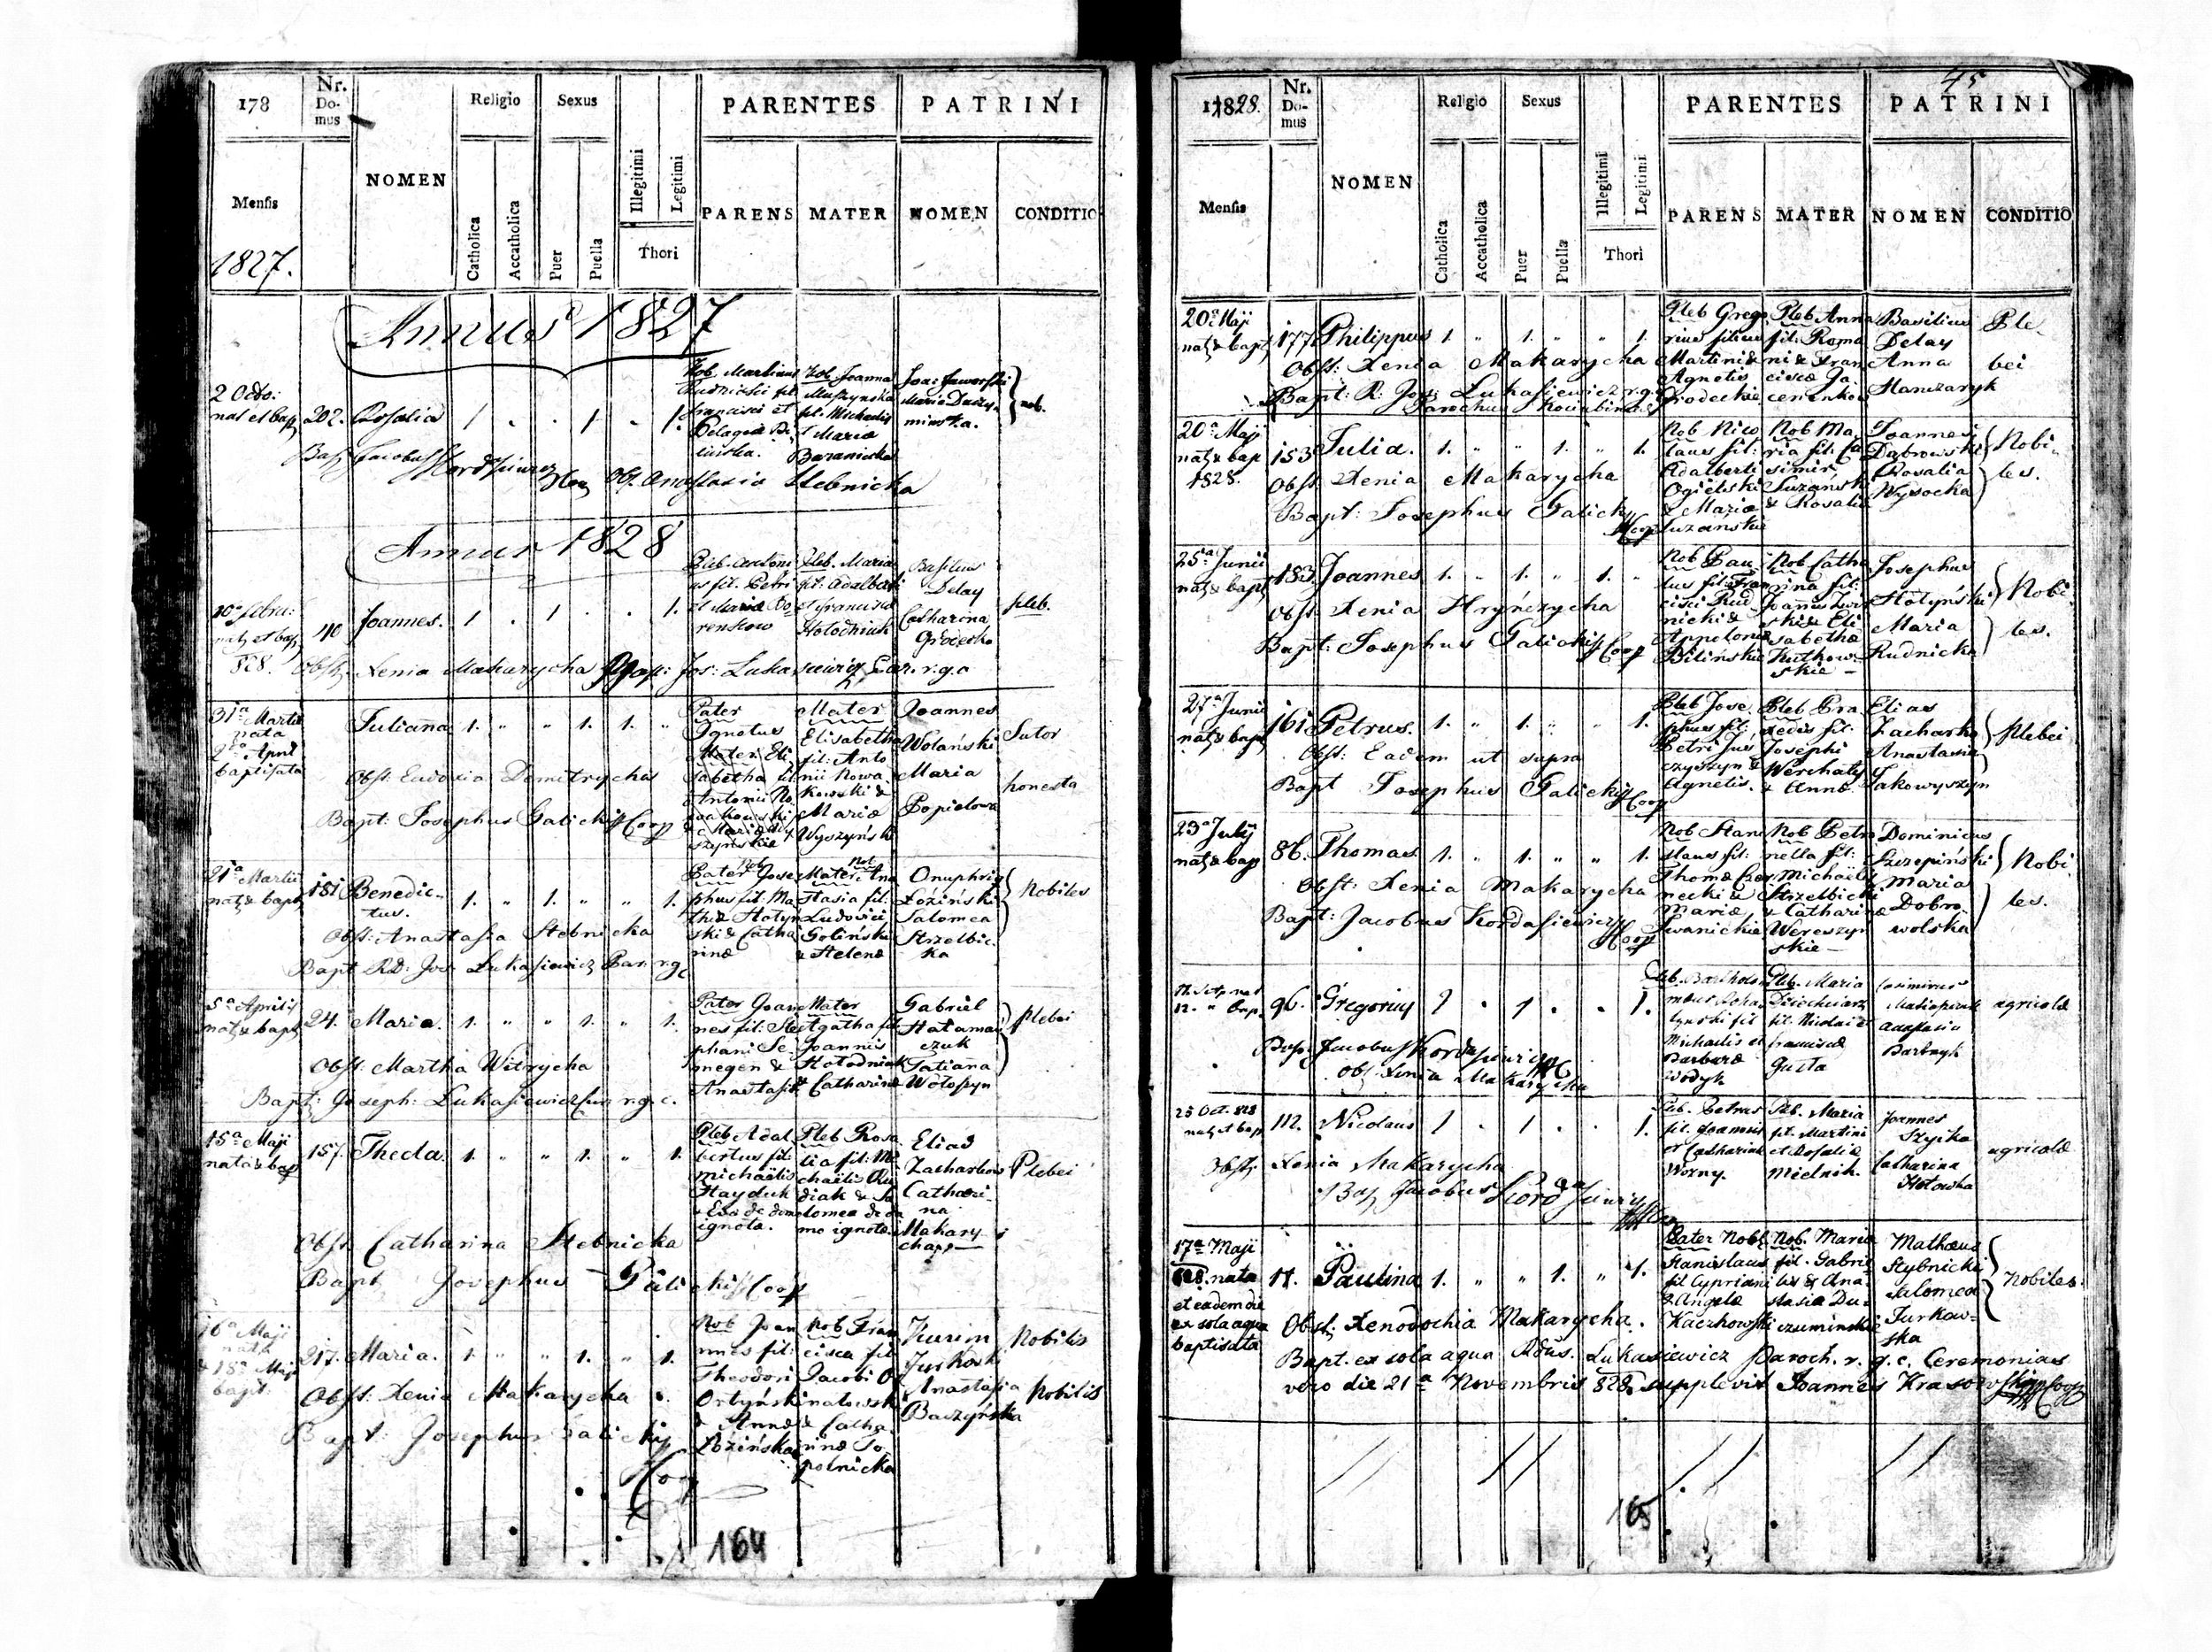 178
Nr. Domus
NOMEN
Religio
Sexus
PARENTES
PATRINI
Mensis
Catholica
Accatholica
Puer
Puella
Illegitimi
Legitimi
Thori
PARENS
MATER
NOMEN
CONDITIO
1827.
Annus 1827
2 Octo:
nat et bap
202.
Rosalia
1 . . 1 . 1.
Nob. Martinus
Rudnicki fil
Francisci et
Pelagia
Nob. Joanna
Muszynska
fil. Michaelis
et Maria
Baraniecka
Joa: Jaworski
Maria
nob.
Bap Jacobus Obs. Anastasia Stebnicka
Annus 1828
10a Febru:
nat et bap
828.
40
Joannes.
1 . 1 . . 1.
Pleb. Antoni
us fil. Petri
et Maria
Pleb. Maria
fil: Adalberti
et Francisca
Hołodniak
Basilius
Delay
Catharina
pleb.
Obst. Xenia Makarycha Bap: Jos: Lukasiewicz Par. r.g.c
31a Martii
nata
2a April
baptisata
Juliana
1. " " 1. 1. "
Pater
Ignotus
Mater Eli
sabetha fil
Antonii No
wakowski
& Maria Wy
szynskie
Mater
Elisabetha
fil: Anto
nii Nowa
kowski &
Maria
Wyszyńsk
Joannes
Wolański
Maria
Popielowa
Sutor
honesta
Obst: Eudoxia Demetrycha
Bapt: Josephus Galicki Coop
21a Martii
nat & bapt
181
Benedic-
tus.
1. " 1. " " 1.
Pater Nob Jose
phus fil: Ma
thiæ Hołyń
ski & Catha
rinæ
Mater Nob Ana
stasia fil:
Ludovici
Golińskie
& Helenæ
Onuphrig
Łoziński
Salomea
Strzelbic-
ka
Nobiles
Obst: Anastasia Stebnicka
Bapt RD: Jos Lukasiewicz Par. r.g.c
5a Aprilis
nat & bapt
24.
Maria.
1. " " 1. " 1.
Pater Joan
nes fil: Ste
phani Se
megen &
Anastasiæ
Mater
Agatha fil
Joannis
Hołodniak
& Catharinæ
Gabriel
Hałaman
czuk
Tatiana
Wołoszyn
plebei
Obst: Martha Witrycha
Bapt: Joseph: Lukasiewicz Par r.g.c.
15a Maji
nata & bap
157.
Thecla.
1. " " 1. " 1.
Pleb Adal
bertus fil:
Michaelis
Hayduk
& Eva de domo
ignota.
Pleb Rosa
lia fil: Mi
chaelis Ru
diak & Sa
lomea de do
mo ignota.
Elias
Zacharkow
Cathari-
na
Makary-
cha
Plebei
Obst Catharina Stebnicka
Bapt Josephus Galicki Coop
16a Maji
nata
& 18a Maji
bapt:
217.
Maria.
1. " " 1. " 1.
Nob Joan
nnes fil:
Theodori
Ortyński
& Annæ
Łozińska
Nob Fran
cisca fil
Jacobi
& Catha
rinæ To
polnicka
Jurkowsk
Anastasia
Baczyńska
Nobilis
Nobilis
Obst: Xenia Makarycha
Bapt: Josephus Galicky
Coop
164
45
1828.
Nr. Domus
NOMEN
Religio
Sexus
PARENTES
PATRINI
Mensis
Catholica
Accatholica
Puer
Puella
Illegitimi
Legitimi
Thori
PARENS
MATER
NOMEN
CONDITIO
20a Maji
nat & bapt
177
Philippus
1. " 1. " " 1.
Pleb Grego
rius filius
Martini &
Agnetis
Grodeckie
Pleb Anna
fil: Roma
ni & Fran
ciscæ Ja-
Basilius
Delay
Anna
Hanczaryk
Ple
bei
Obst: Xenia Makarycha
Bapt: R: Jos: Lukasiewicz r.g.c
Parochus
20a Maji
nat & bap
1828.
153
Julia.
1. " " 1. " 1.
Nob Nico
laus fil:
Adalberti
Ogielski
& Mariæ
Łuzańskie
Nob Ma-
ria fil: Ca
simir
Łuzańsk
& Rosalia
Joannes
Dąbrowski
Rosalia
Wysocka
Nobi-
les.
Obst Xenia Makarycha
Bapt: Josephus Galicky
Coop
25a Junii
nat & bapt
183
Joannes
1. " 1. " 1. "
Nob Pau-
lus fil: Fran
cisci Rud
nicki &
Appolonia
Bilińskie
Nob Catha
rina fil:
Joannis
ski & Eli
sabetha
Kutkow-
skie
Josephus
Hołyński
Maria
Rudnicka
Nobi
les.
Obst Xenia Hryńczycha
Bapt: Josephus Galicki Coop
27a Junii
nat & bap
161
Petrus.
1. " 1. " " 1.
Pleb Jose
phus fil:
Petri Jus
czyszyn &
Agnetis.
Pleb Pra
xedis fil:
Josephi
Werchaty
& Annæ
Elias
Zacharko
Anastasia
Jakowyszyn
plebei
Obst: Eadem ut supra
Bapt Josephus Galicki Coop
23a Julij
nat & bap
86.
Thomas
1. " 1. " " 1.
Nob Stani
slaus fil:
Thomæ
necki &
Mariæ
Iwanickie
Nob Petro
nella fil:
Michaelis
Strzelbicki
& Catharinæ
Wereszyn
skie
Dominicus
Szczepiński
Maria
Dobro
wolska
Nobi
les.
Obst: Xenia Makarycha
Bapt: Jacobus Kordasiewicz
Coop
12. " bap.
96.
Gregorius
1 . 1 . . 1.
Pleb. Bartholo
meus
fil
Michaelis et
Barbaræ
Wodyk
Pleb. Maria
fil. Nicolai et
Franciscæ
Guta
Casimirus
Anastasia
agricolæ
Bap: Jacobus Kordasiewicz
Obs. Xenia Makarycha
25 Oct. 828
nat et bap
112.
Nicolaus
1 . 1 . . 1.
Pleb. Petrus
fil. Joannis
et Catharinæ
Wozny.
Pleb. Maria
fil. Martini
et Rosaliæ
Mielnik.
Joannes
Szyika
Catharina
Hołowka
agricolæ
Obst. Xenia Makarycha
Bap Jacobus Kordasiewicz
17a Maji
828. nata
et eadem die
ex sola aqua
baptisata
11.
Paulina
1. " " 1. " 1.
Pater Nobl
Stanislaus
fil Cypriani
& Angelæ
Kaczkowski
Nob. Maria
fil. Gabrie-
lis & Ana-
stasiæ Du-
czuminskie
Mathæus
Stybnicki
Salomea
Turkow-
ska
Nobiles.
Obst: Xenodochia Makarycha.
Bapt. ex sola aqua Adus. Lukasiewicz Paroch. r. g. c. Ceremonias
vero die 21a Novembris 828. supplevit Joannes Krasowski Coop
165